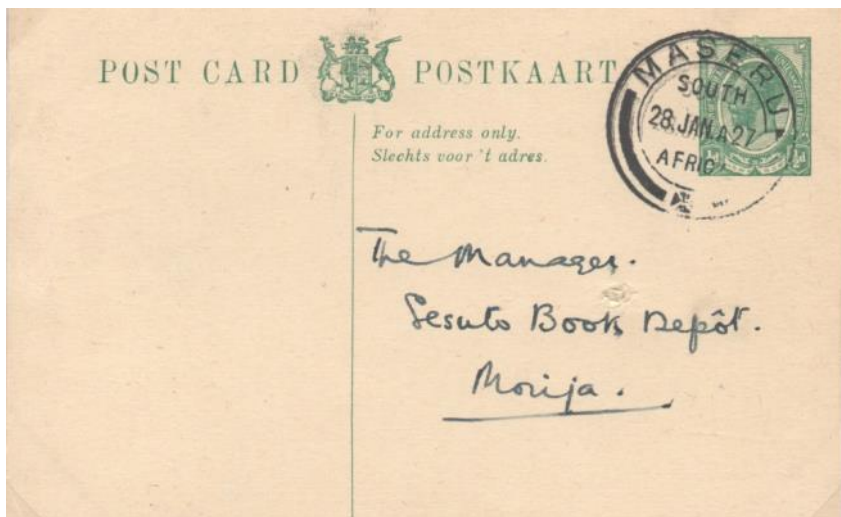 POST CARD POSTKAART
For address only.
Slechts voor 't adres.
MASERU
SOUTH
28.JAN.A27
The Manager.
Sesuto Book Depôt.
Morija.